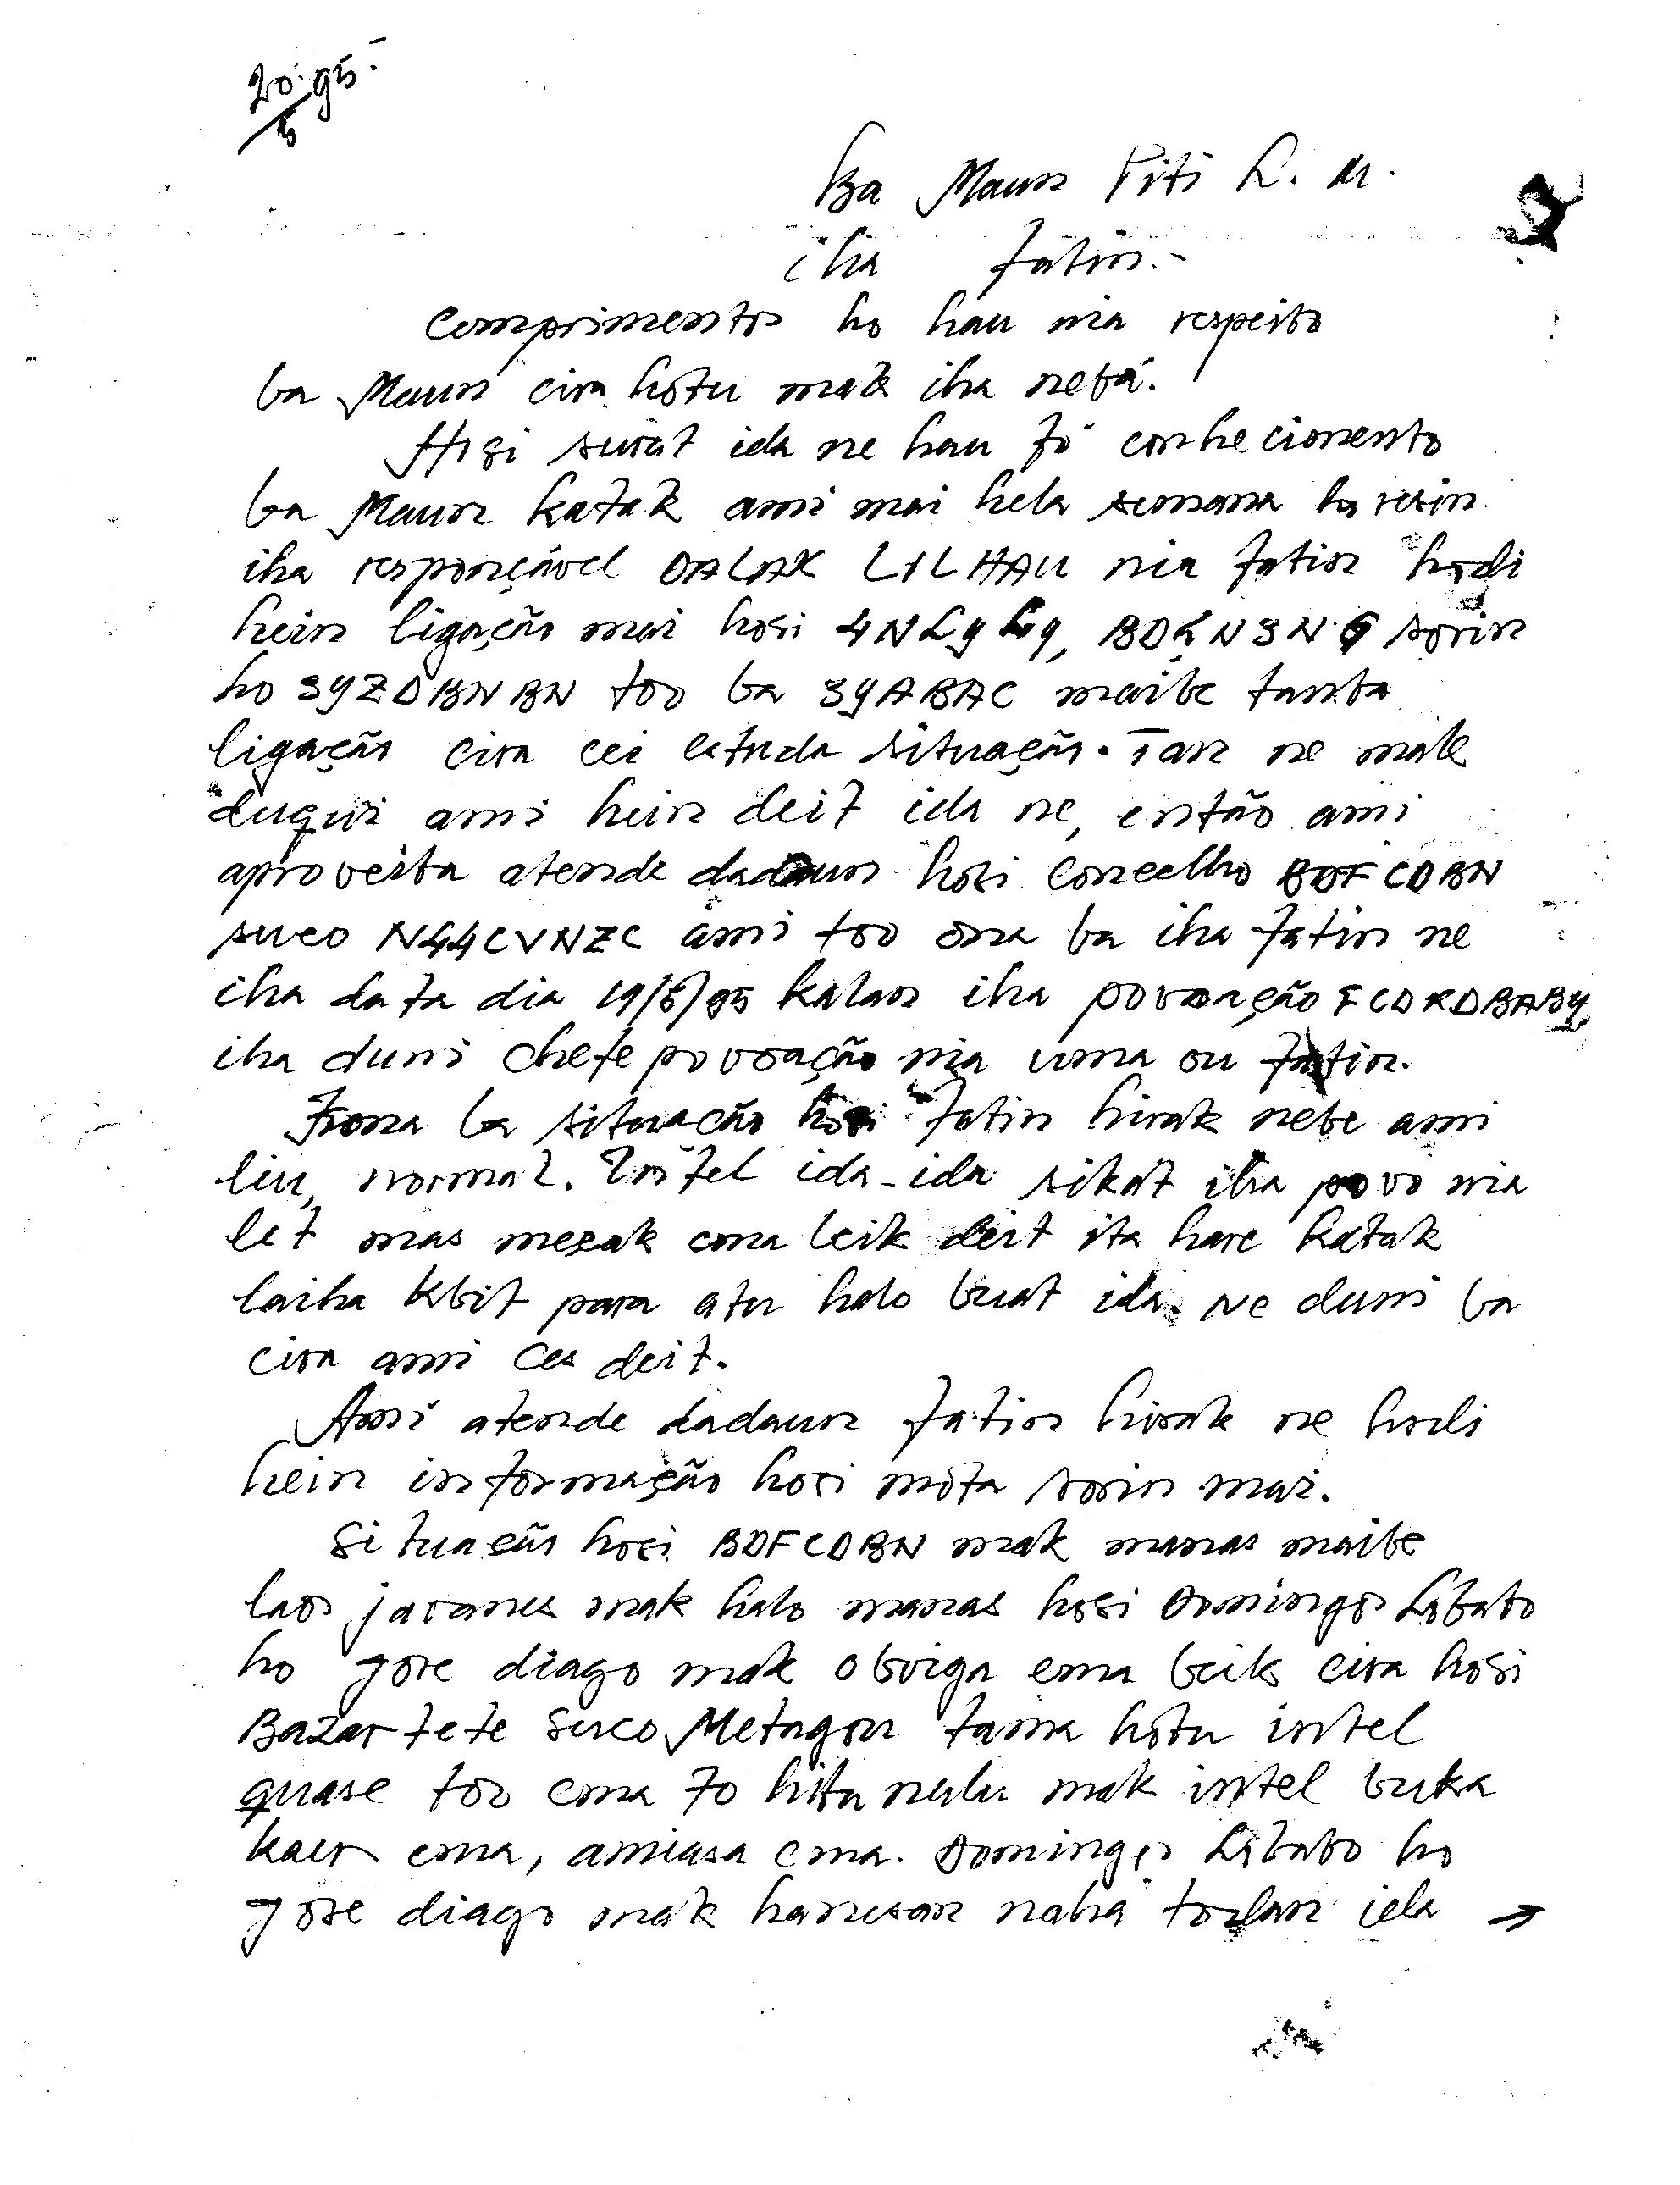 20.95.-
6
Ba Maun Piti L. M.
iha Fatin.-
Comprimentos ho hau nia respeito
ba Maun cira hotu mak iha nebá.
Hosi surat ida ne hau fó conhecimento
ba Maun katak ami mai hela semana ha resin
iha responçável DALAK LILHAU nia fatin hodi
hein ligação mai hosi sorin
ho SYZDBNBN too ba SYABAC maibe tamba
ligação cira cei estuda situação. Tan ne mak
duqui ami hein deit ida ne, então ami
aproveita atende dadaun hosi Concelho BDFCDBN
suco N44CVNZC ami too ona ba iha fatin ne
iha data dia 19/6/95 kalan iha povoação FCDRDBABY
iha duni chefe povoação nia uma ou fatin.
Fona ba situação hosi fatin hirak nebe ami
liu, normal. Intel ida-ida sikat iha povo nia
let mas mesak ema beik deit ita hare katak
laiha kbit para atu halo buat ida. Ne duni ba
cira ami ces deit.
Ami atende dadaun fatin hirak ne hodi
hein informação hosi mota sorin mai.
Situação hosi BDFCDBN mak manas maibe
laos javanes mak halo manas hosi Domingos Lobato
ho Jose diago mak obriga ema beik cira hosi
Bazartete Suco Metagou tama hotu intel
quase too ema 70 hitu nulu mak intel buka
kaer ema, amiasa ema. Domingos Lobato ho
Jose diago mak hanesan naha todan ida →